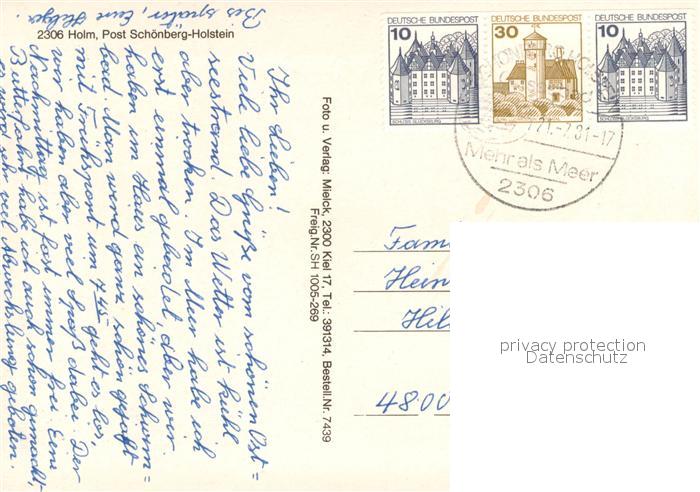 2306 Holm, Post Schönberg-Holstein
Ihr Lieben!
Viele liebe Grüße vom schönen Ost=
seestrand. Das Wetter ist kühl
aber trocken. Im Meer habe ich
erst einmal gebadet, aber wir
haben im Haus ein schönes Schwimm=
bad. Man wird ganz schön geschafft
mit Frühsport um 7.45 geht es los,
wir haben aber viel Spaß dabei. Der
Nachmittag ist fast immer frei. Eine
Butterfahrt habe ich auch schon gemacht,
es wird sehr viel Abwechslung geboten.
Bis später, Eure Helga
Foto u. Verlag: Mielck, 2300 Kiel 17, Tel.: 391314, Bestell.Nr. 7439
Freig.Nr.SH 1005-269
DEUTSCHE BUNDESPOST
10
SCHLOSS GLÜCKSBURG
DEUTSCHE BUNDESPOST
30
DEUTSCHE BUNDESPOST
10
SCHLOSS GLÜCKSBURG
21.-7.81-17
Mehr als Meer
2306
Fam
Hein
Hil
4800
privacy protection
Datenschutz